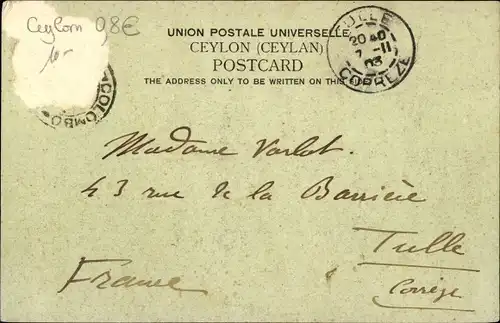 Ceylon 98€
10-
UNION POSTALE UNIVERSELLE
CEYLON (CEYLAN)
POSTCARD
THE ADDRESS ONLY TO BE WRITTEN ON THIS
TULLE
7 -11
03
CORREZE
COLOMBO
Madame Varlot.
43 rue de la Barrière
Tulle
Corrèze
France